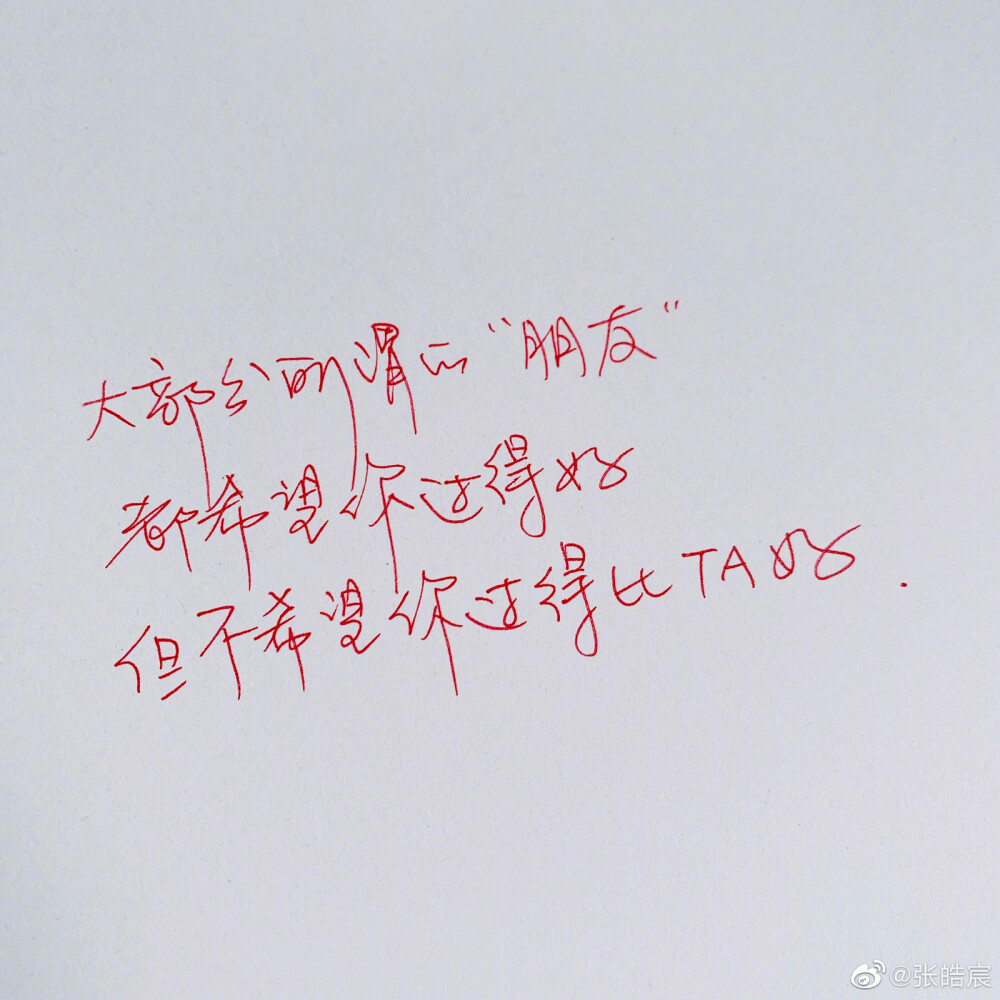 大部分所谓的“朋友”
都希望你过得好
但不希望你过得比TA好.
@张皓宸